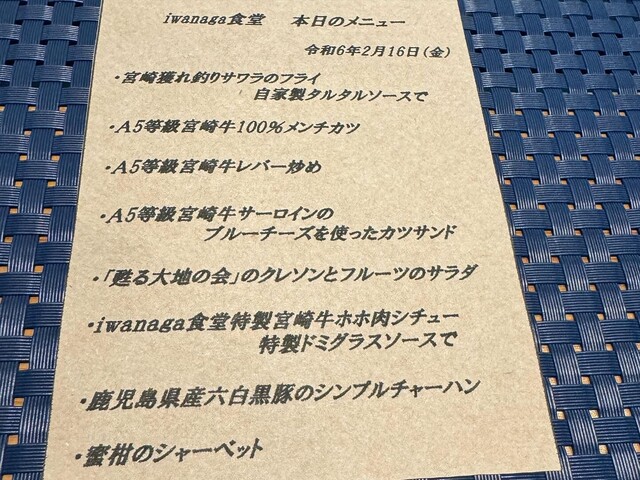 iwanaga食堂　本日のメニュー
令和6年2月16日(金)
・宮崎獲れ釣りサワラのフライ
自家製タルタルソースで
・A5等級宮崎牛100%メンチカツ
・A5等級宮崎牛レバー炒め
・A5等級宮崎牛サーロインの
ブルーチーズを使ったカツサンド
・「甦る大地の会」のクレソンとフルーツのサラダ
・iwanaga食堂特製宮崎牛ホホ肉シチュー
特製ドミグラスソースで
・鹿児島県産六白黒豚のシンプルチャーハン
・蜜柑のシャーベット